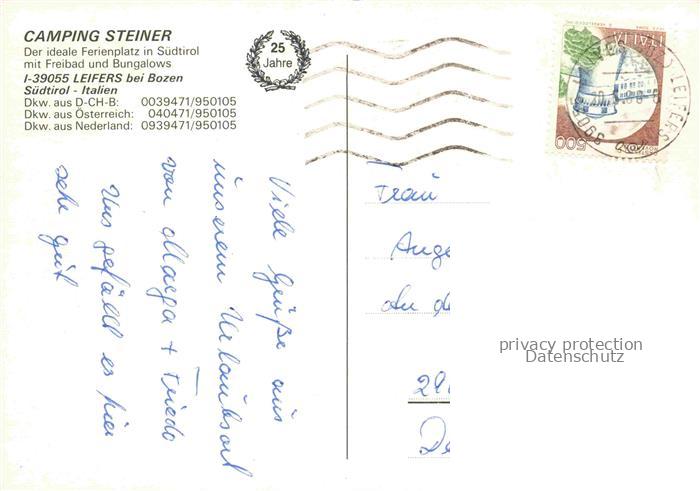 CAMPING STEINER
Der ideale Ferienplatz in Südtirol
mit Freibad und Bungalows
I-39055 LEIFERS bei Bozen
Südtirol - Italien
Dkw. aus D-CH-B: 0039471/950105
Dkw. aus Österreich: 040471/950105
Dkw. aus Nederland: 0939471/950105
25
Jahre
Viele Grüße aus
unserem Urlaubsort
von Marga + Friedo
Uns gefällt es hier
sehr gut
Frau
Ange
An d
29
De
ITALIA
500
LEIFERS
privacy protection
Datenschutz